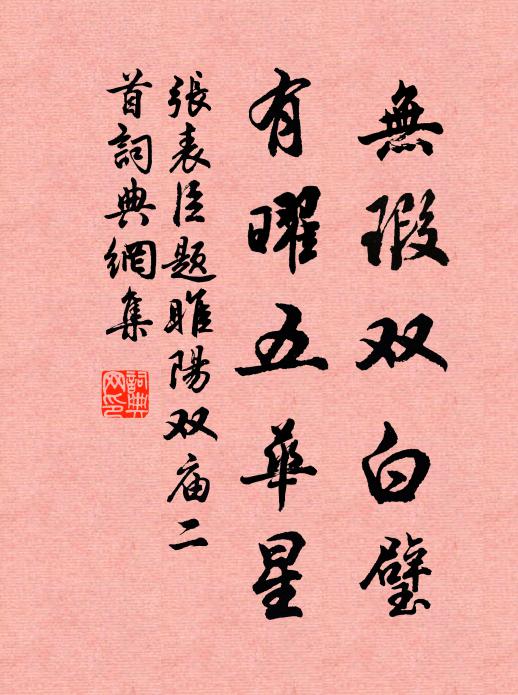 無瑕双白璧
有曜五華星
張表臣題睢陽双庙二
首詞典網集
詞典
网印